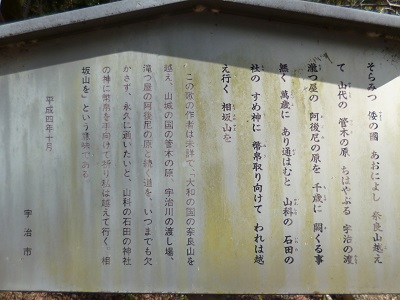 そらみつ 倭の國 あおによし 奈良山越え
て 山代の 管木の原 ちはやぶる 宇治の渡
瀧つ屋の 阿後尼の原を 千歳に 闕くる事
無く 萬歳に あり通はむと 山科の 石田の
社の すめ神に 幣帛取り向けて われは越
え行く 相坂山を
この歌の作者は未詳で「大和の国の奈良山を
越え、山城の国の管木の原、宇治川の渡し場、
滝つ屋の阿後尼の原と続く道を、いつまでも欠
かさず、永久に通いたいと、山科の石田の神社
の神に幣帛を手向けて祈り私は越えて行く、相
坂山を」という意味である
平成四年十月
宇治市